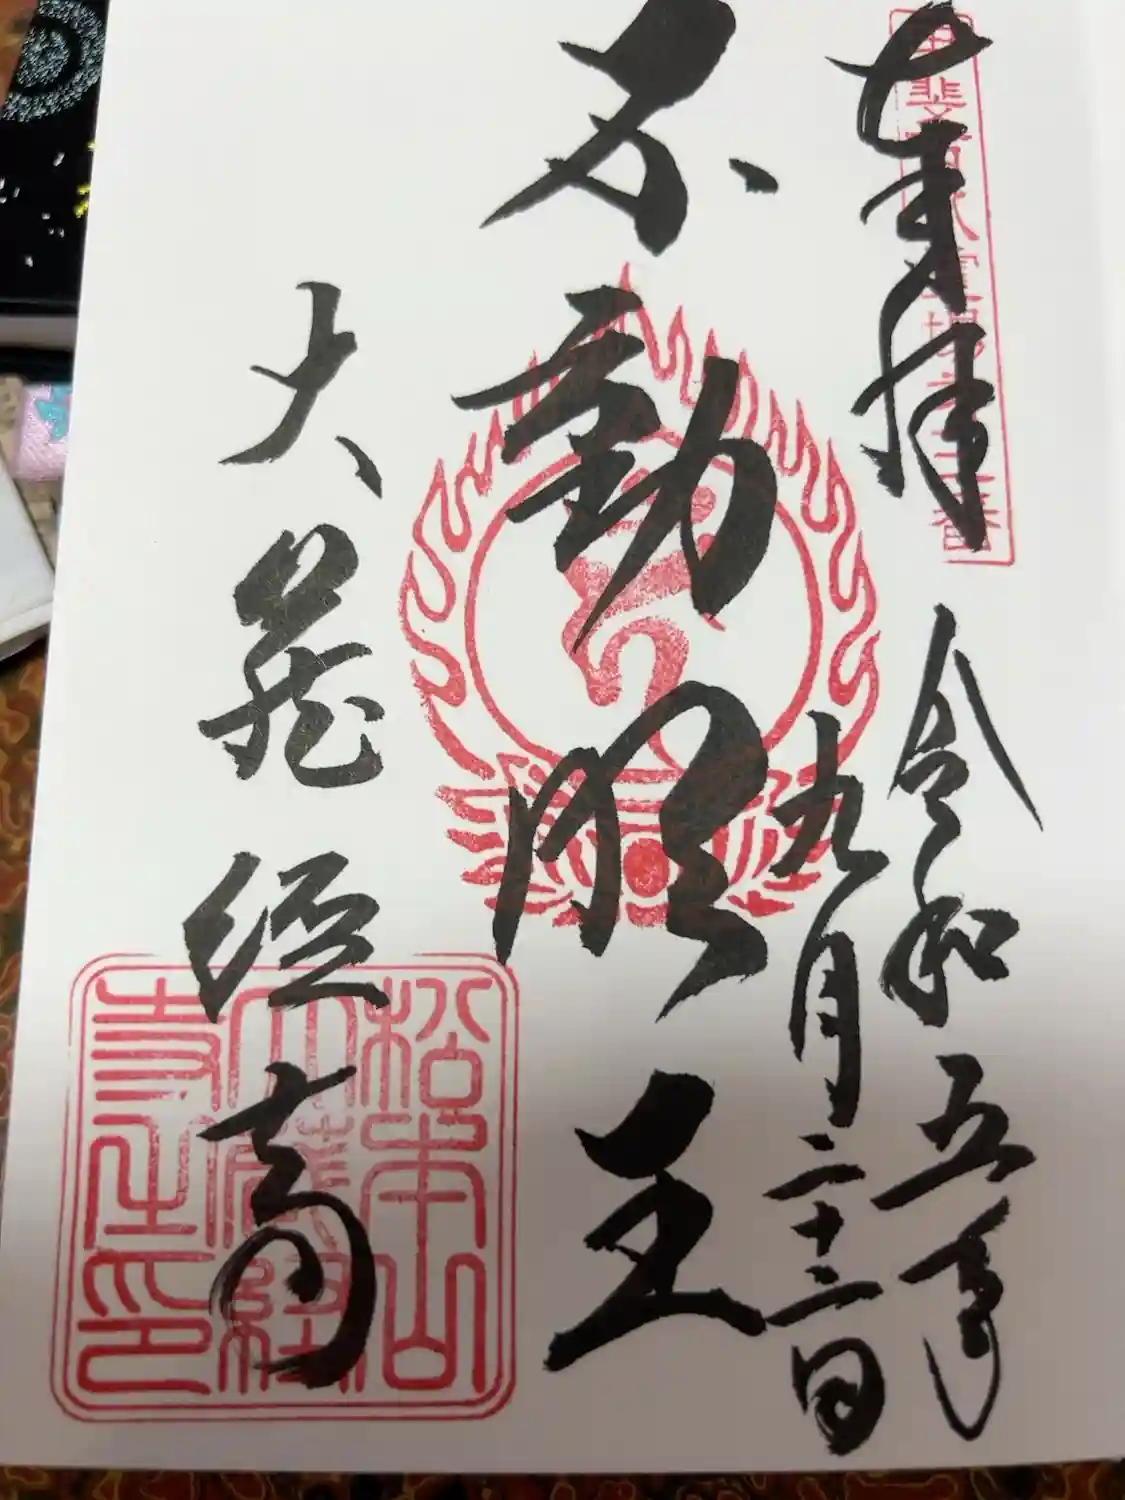 甲斐百八霊場
番
奉拝
令和五年
九月二十二日
不動明王
大蔵経寺
松本山
大蔵経
寺之印